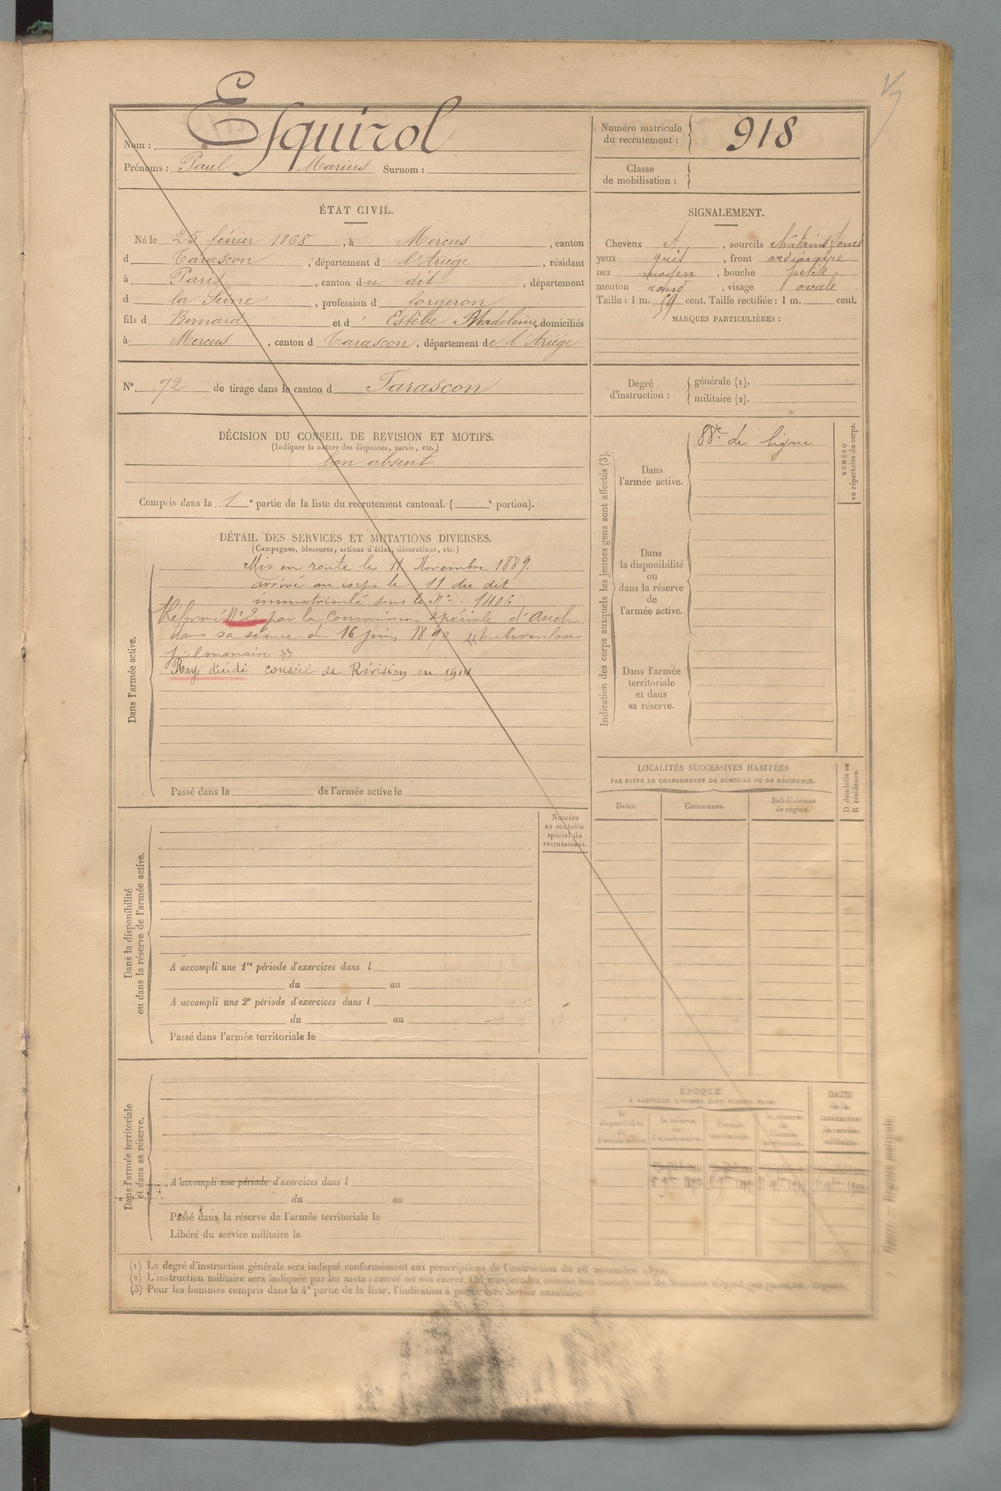 Nom : Esquirol
Prénoms : Paul Marius Surnom :
Numéro matricule du recrutement : 918
Classe de mobilisation :
ÉTAT CIVIL.
Né le 25 février 1868, à Mercus, canton
d Tarascon, département d l'Ariège, résidant
à Paris, canton du dit, département
d la Seine, profession d forgeron
fils d Bernard et d' Estèbe Madeleine, domiciliés
à Mercus, canton d Tarascon, département de l'Ariége
N° 72 de tirage dans le canton d Tarascon
SIGNALEMENT.
Cheveux , sourcils châtains foncés
yeux gris, front ordinaire
nez moyen, bouche petite
menton rond, visage ovale
Taille : 1 m. 59 cent. Taille rectifiée : 1 m. cent.
MARQUES PARTICULIÈRES :
Degré d'instruction : générale (1).
militaire (2).
DÉCISION DU CONSEIL DE REVISION ET MOTIFS.
(Indiquer la nature des dispenses, sursis, etc.)
bon absent
Compris dans la 1 e partie de la liste du recrutement cantonal. ( e portion).
DÉTAIL DES SERVICES ET MUTATIONS DIVERSES.
(Campagnes, blessures, actions d'éclat, décorations, etc.)
Dans l'armée active.
Mis en route le 11 Novembre 1889.
arrivé au corps le 11 du dit
immatriculé sous le N° 1406
Réformé N° 2 par la Commission spéciale d'Auch
dans sa séance du 16 juin 1890 "tuberculose
pulmonaire"
Rayé décidé conseil de Révision en 1914
Passé dans la de l'armée active le
Indication des corps auxquels les jeunes gens sont affectés (3).
Dans l'armée active.
88e de ligne
NUMÉRO au répertoire du corps.
Dans la disponibilité ou dans la réserve de l'armée active.
Dans l'armée territoriale et dans sa réserve.
LOCALITÉS SUCCESSIVES HABITÉES
PAR SUITE DE CHANGEMENTS DE DOMICILE OU DE RÉSIDENCE.
Dates.
Communes.
Subdivisions de région.
D domicile ou R résidence.
Dans la disponibilité ou dans la réserve de l'armée active.
Numéro au contrôle spécial du recrutement.
A accompli une 1re période d'exercices dans l
du au
A accompli une 2e période d'exercices dans l
du au
Passé dans l'armée territoriale le
Dans l'armée territoriale et dans sa réserve.
A accompli une période d'exercices dans l
du au
Passé dans la réserve de l'armée territoriale le
Libéré du service militaire le
ÉPOQUE
DATE
(1) Le degré d'instruction générale sera indiqué conformément aux prescriptions de l'instruction du 26 novembre
(2) L'instruction militaire sera indiquée par les mots : exercé ou non exercé.
(3) Pour les hommes compris dans la 4e partie de la liste, l'indication à porter est : Service auxiliaire.